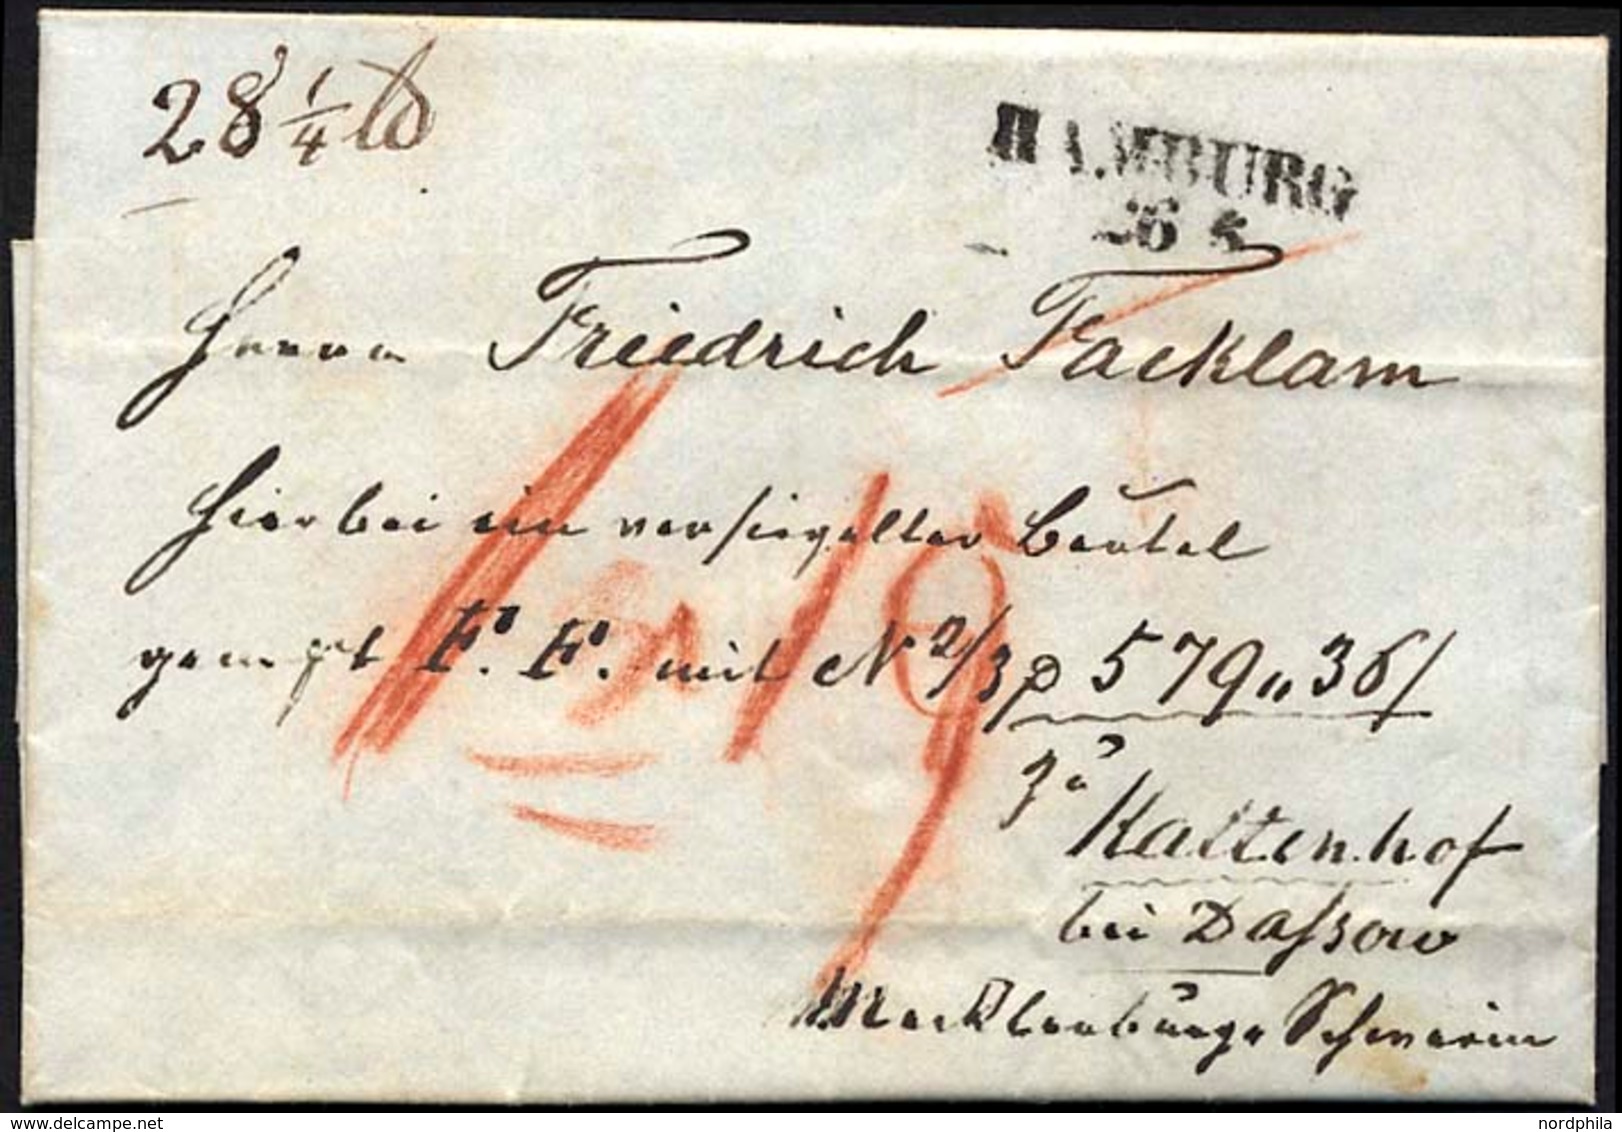 28 1/4 lb
HAMBURG
26 5
Herrn Friedrich Facklam
hierbei ein versiegelter Beutel
gemgt F. F. mit № 2/3 p 579 „ 36/
zu
Kaltenhof
bei Dassow
Mecklenburg Schwerin
nordphila